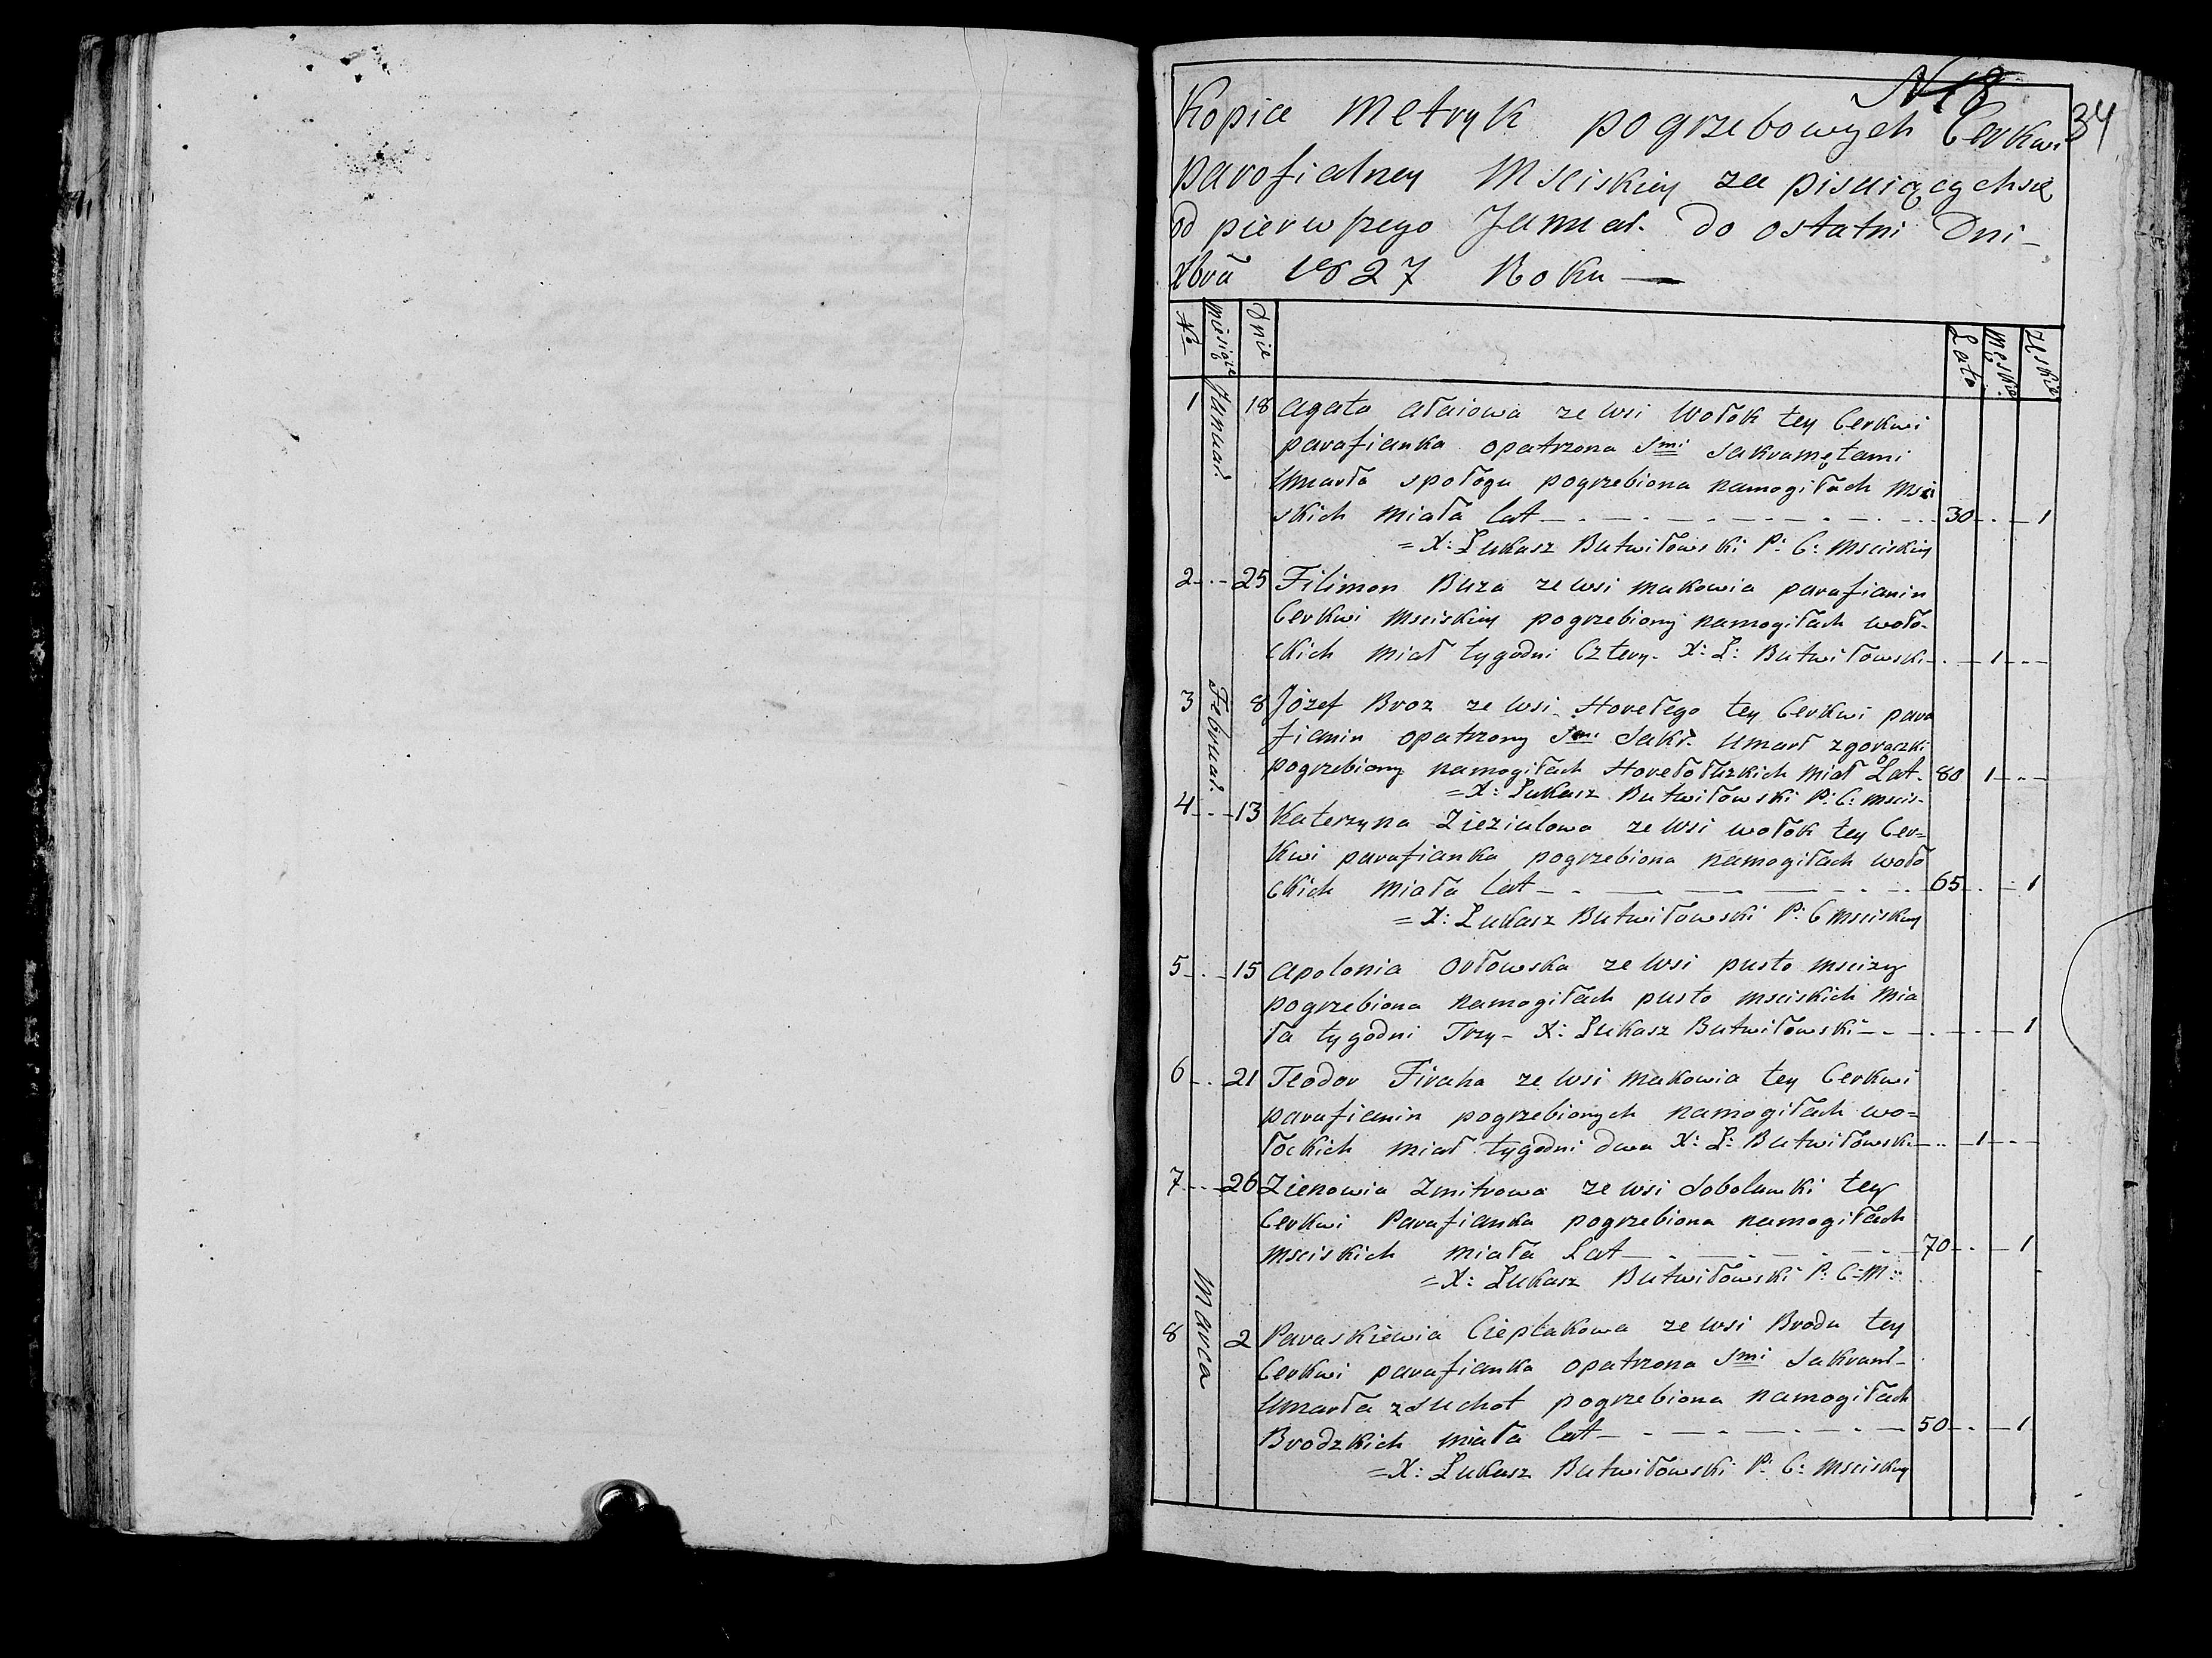 N 18
34
Kopia Metryk pogrzebowych Cerkwi
parofialney Msciskiey za pisuiących się
od pierwszego Januar. do ostatni Dni-
Xbra 1827 Roku —
No Miesiące Dnie Lata Męska Zęskie
1 Januar. 18 Agata Ałaiowa ze wsi Wołok tey Cerkwi
parafianka opatrzona Smi Sakramętami
Umarła społogu pogrzebiona namogiłach Msci
skich miała lat — 30 — 1
= X: Łukasz Butwiłowski P: C: Msciskiey
2 25 Filimon Buza ze wsi Makowia parafianin
Cerkwi Msciskiey pogrzebiony namogiłach woło-
ckich miał tygodni Cztery- X: Ł: Butwiłowski — 1
3 Februar. 8 Józef Broz ze wsi Horełego tey Cerkwi para
fianin opatrzony Smi Sakr. Umarł zgorączki
pogrzebiony namogiłach miał Lat. 80 1
= X: Łukasz Butwiłowski P: C: Mscis-
4 13 Katerzyna Zieziulowa ze wsi wołok tey Cer=
kwi parafianka pogrzebiona namogiłach woło
ckich miała lat — 65 — 1
= X: Łukasz Butwiłowski P: C Msciskiey
5 15 Apolonia Orłowska ze wsi pusto Mscizy
pogrzebiona namogiłach pusto Msciskich mia
ła tygodni Trzy- X: Łukasz Butwiłowski — 1
6 21 Teodor Firaha ze wsi Makowia tey Cerkwi
parafianin pogrzebionych namogiłach wo=
łockich miał tygodni dwa X: Ł: Butwiłowski — 1
7 26 Zienowia Zmitrowa ze wsi Sobolunki tey
Cerkwi Parafianka pogrzebiona namogiłach
Msciskich miała Lat — 70 — 1
= X: Łukasz Butwiłowski P: C: M:
8 Marca 2 Paraskiewia Cieplakowa ze wsi Brodu tey
Cerkwi parafianka opatrzona Smi Sakram-
Umarła zsuchot pogrzebiona namogiłach
Brodzkich miała lat — 50 — 1
= X: Łukasz Butwiłowski P: C: Msciskiey